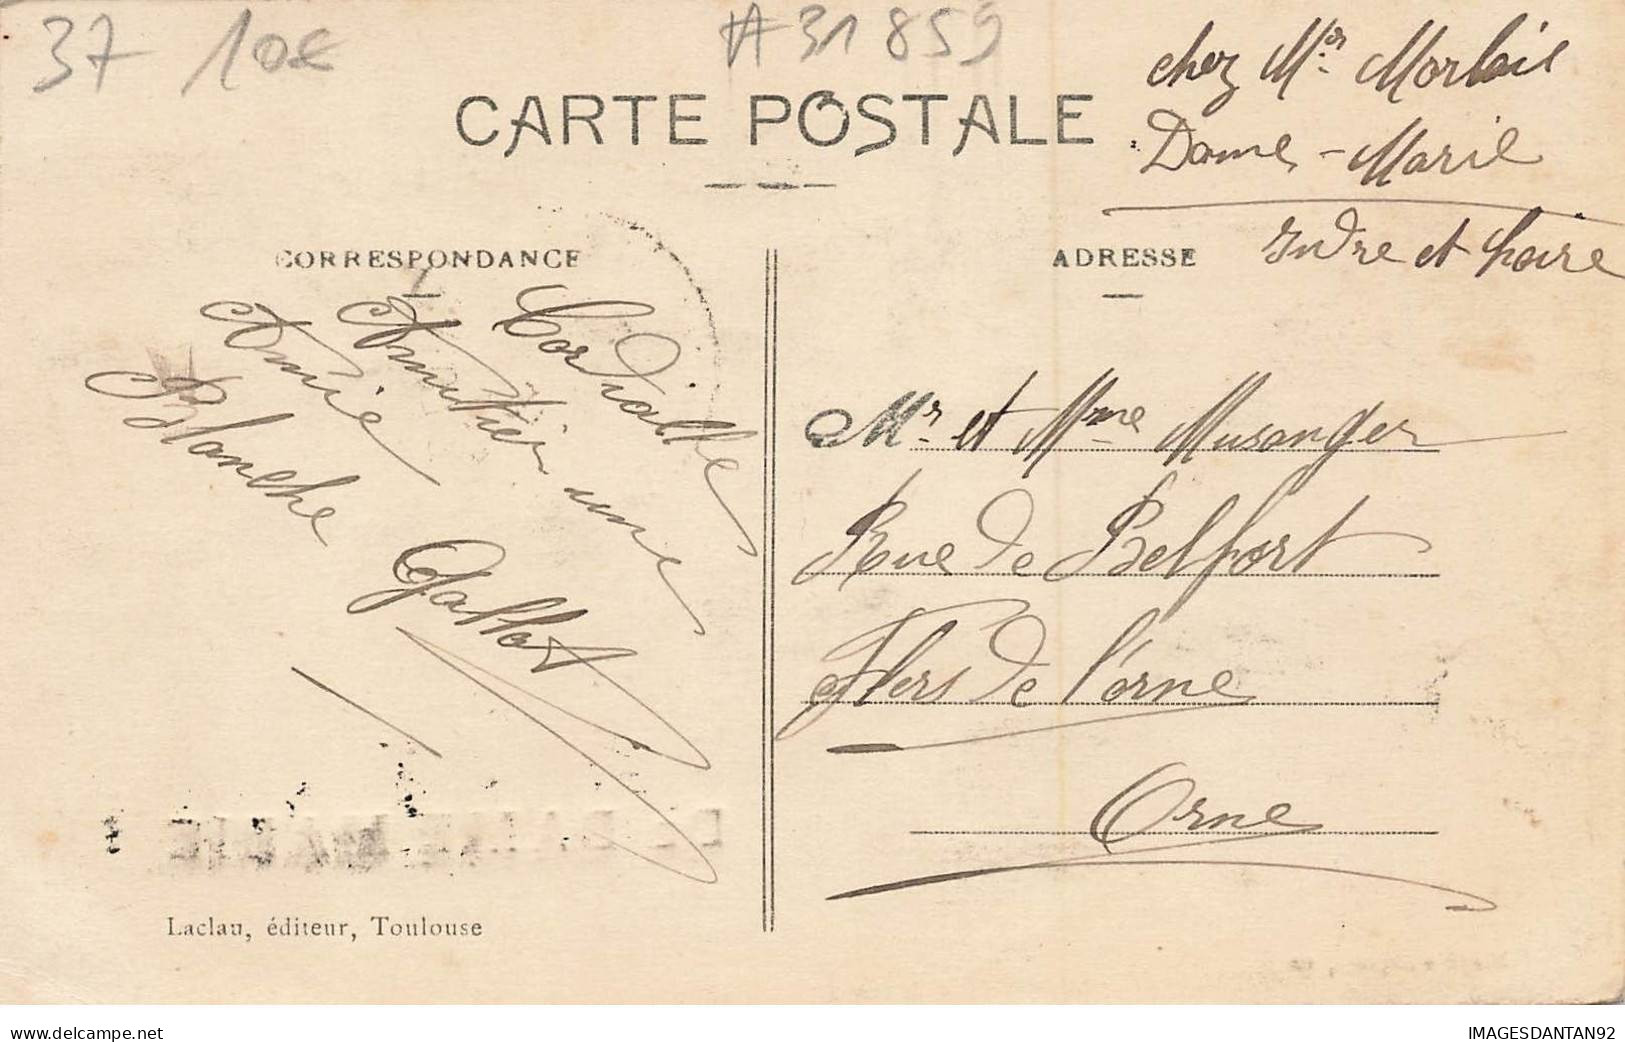 37 10€
#31859
chez Mr. Morlais
Dame-Marie
Indre et Loire
CARTE POSTALE
CORRESPONDANCE
ADRESSE
Cordialle
Amitier une
Amie
Blanche
Gallet
Mr. et Mme Musanger
Rue de Belfort
Flers de l'orne
Orne
Laclau, éditeur, Toulouse
www.delcampe.net
IMAGESDANTAN92